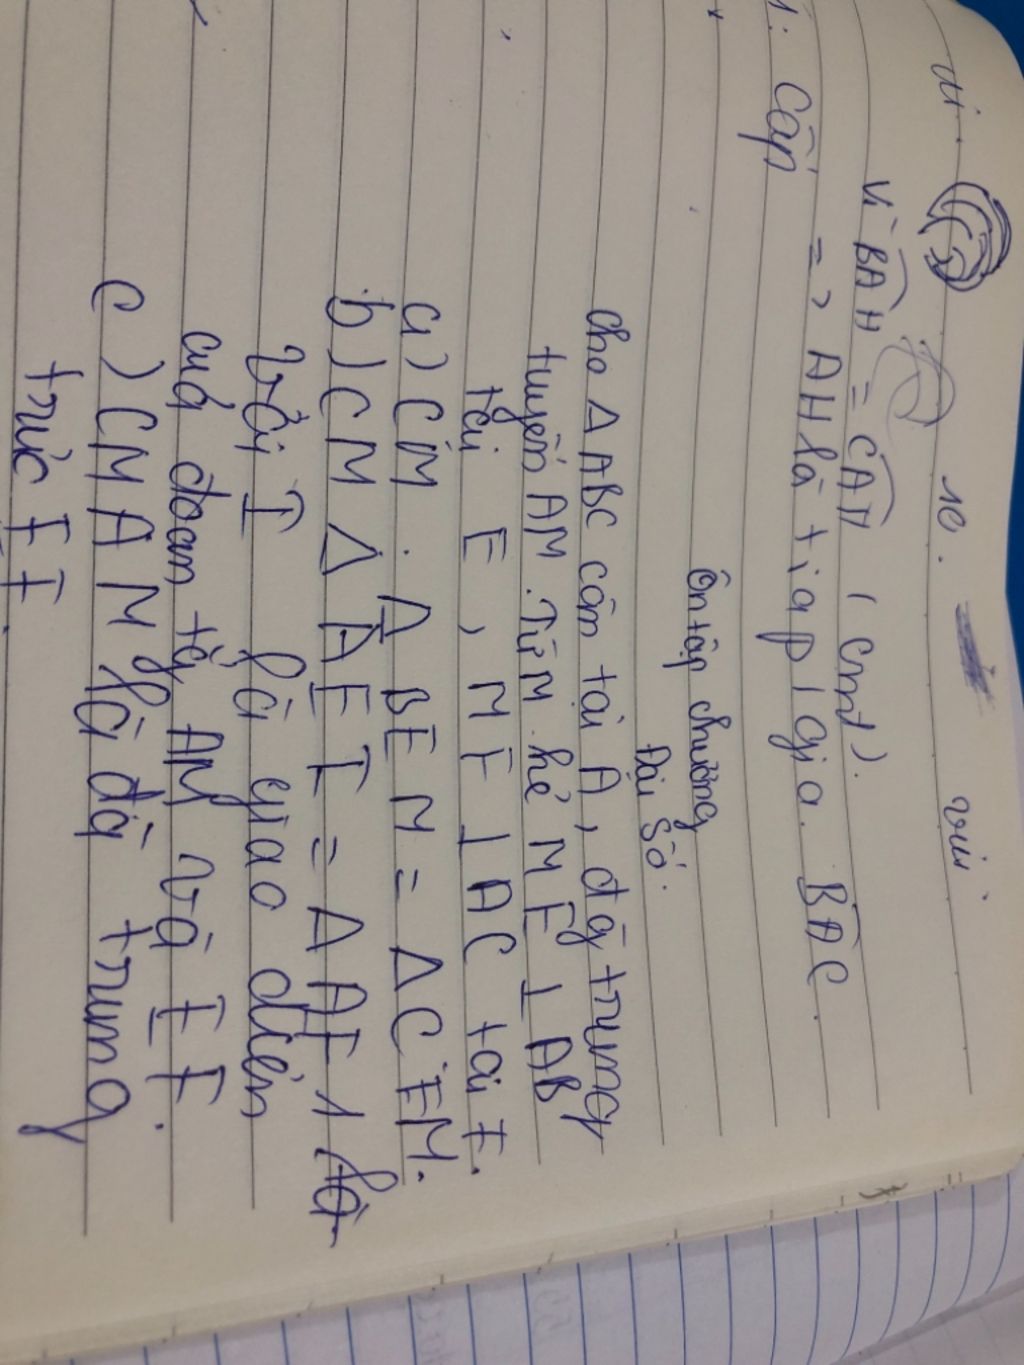 vì BAH = CAH (cmt).
=> AH là tia p/giá. BAC
1. Cấp
Ôn tập chương
Đại Số.
Cho Δ ABC cân tại A, đg trung
tuyến AM. Từ M kẻ ME ⊥ AB
tại E, MF ⊥ AC tại F.
a) CM. Δ BEM = Δ CFM.
b) CM Δ AEI = Δ AFI
với I là giao điểm
của đoạn tg AM và EF.
c) CM AM là đg trung
trực EF.